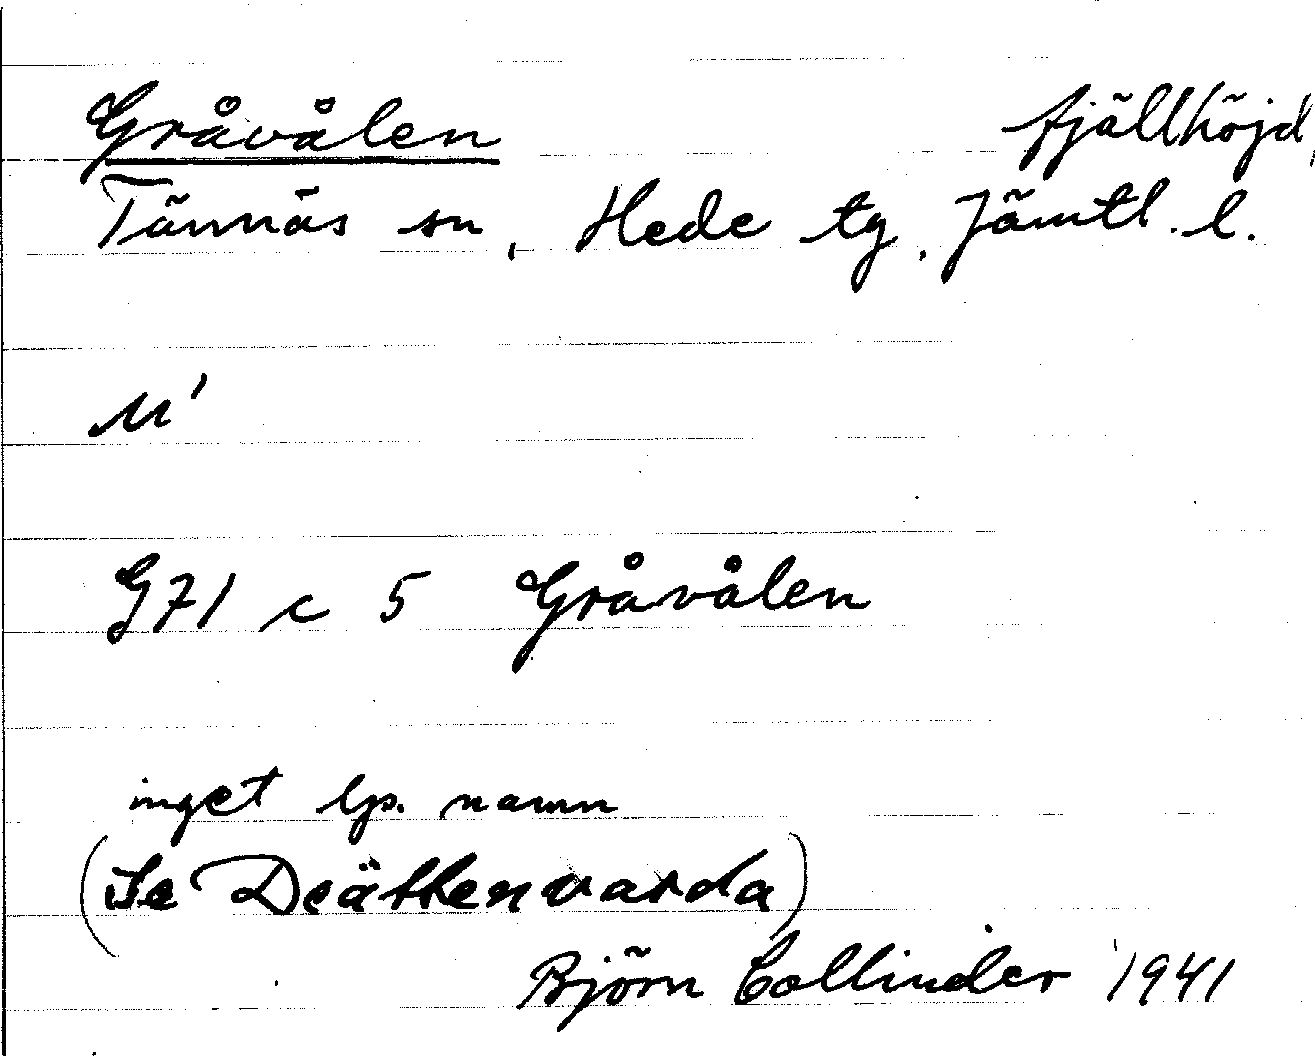 Gråvålen fjällhöjd,
Tännäs sn, Hede tg, Jämtl. l.
G71 c 5 Gråvålen
inget lp. namn
(Se Deättenvarda)
Björn Collinder 1941